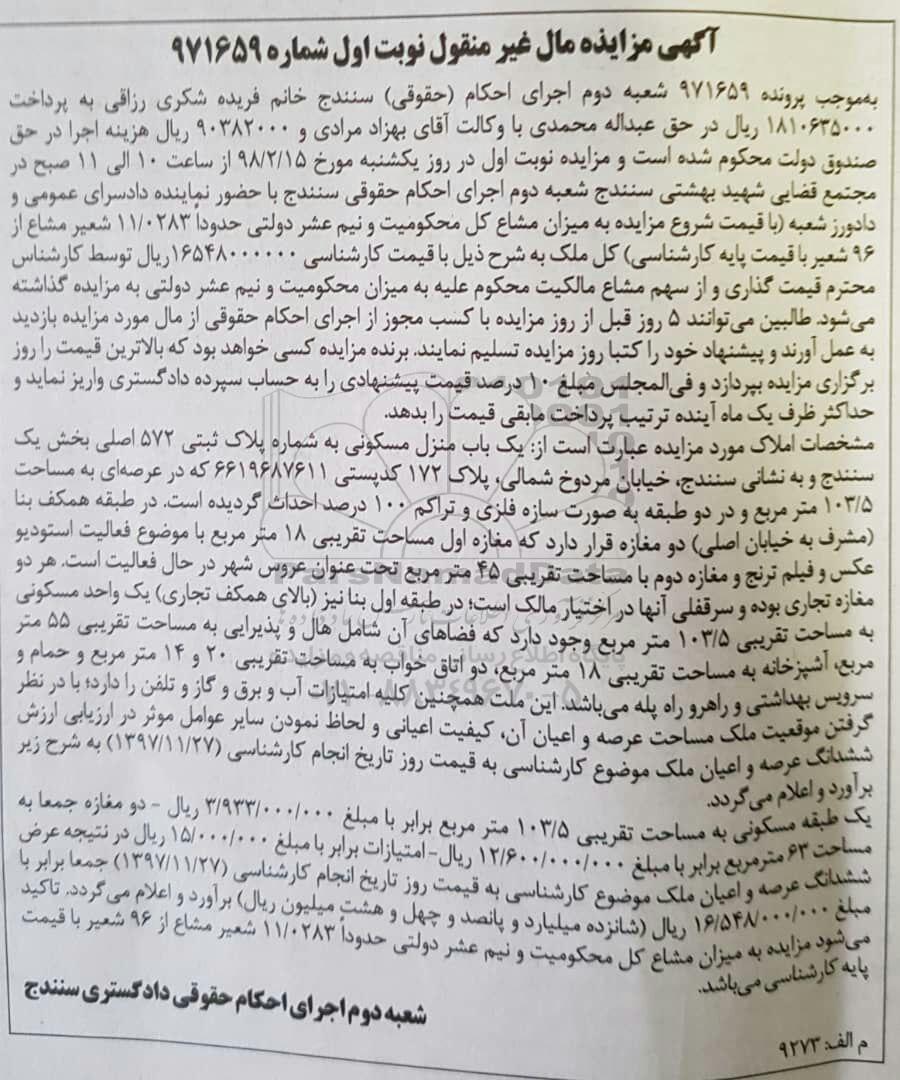 آگهی مزایده مال غیر منقول نوبت اول شماره ۹۷۱۶۵۹
به‌موجب پرونده ۹۷۱۶۵۹ شعبه دوم اجرای احکام (حقوقی) سنندج خانم فریده شکری رزاقی به پرداخت
۱۸۱۰۶۳۵۰۰۰ ریال در حق عبداله محمدی با وکالت آقای بهزاد مرادی و ۹۰۳۸۲۰۰۰ ریال هزینه اجرا در حق
صندوق دولت محکوم شده است و مزایده نوبت اول در روز یکشنبه مورخ ۹۸/۲/۱۵ از ساعت ۱۰ الی ۱۱ صبح در
مجتمع قضایی شهید بهشتی سنندج شعبه دوم اجرای احکام حقوقی سنندج با حضور نماینده دادسرای عمومی و
دادورز شعبه (با قیمت شروع مزایده به میزان مشاع کل محکومیت و نیم عشر دولتی حدوداً ۱۱/۰۲۸۳ شعیر مشاع از
۹۶ شعیر با قیمت پایه کارشناسی) کل ملک به شرح ذیل با قیمت کارشناسی ۱۶۵۴۸۰۰۰۰۰۰ریال توسط کارشناس
محترم قیمت گذاری و از سهم مشاع مالکیت محکوم علیه به میزان محکومیت و نیم عشر دولتی به مزایده گذاشته
می‌شود. طالبین می‌توانند ۵ روز قبل از روز مزایده با کسب مجوز از اجرای احکام حقوقی از مال مورد مزایده بازدید
به عمل آورند و پیشنهاد خود را کتبا روز مزایده تسلیم نمایند. برنده مزایده کسی خواهد بود که بالاترین قیمت را روز
برگزاری مزایده بپردازد و فی‌المجلس مبلغ ۱۰ درصد قیمت پیشنهادی را به حساب سپرده دادگستری واریز نماید و
حداکثر ظرف یک ماه آینده ترتیب پرداخت مابقی قیمت را بدهد.
مشخصات املاک مورد مزایده عبارت است از: یک باب منزل مسکونی به شماره پلاک ثبتی ۵۷۲ اصلی بخش یک
سنندج و به نشانی سنندج، خیابان مردوخ شمالی، پلاک ۱۷۲ کدپستی ۶۶۱۹۶۸۷۶۱۱ که در عرصه‌ای به مساحت
۱۰۳/۵ متر مربع و در دو طبقه به صورت سازه فلزی و تراکم ۱۰۰ درصد احداث گردیده است. در طبقه همکف بنا
(مشرف به خیابان اصلی) دو مغازه قرار دارد که مغازه اول مساحت تقریبی ۱۸ متر مربع با موضوع فعالیت استودیو
عکس و فیلم ترنج و مغازه دوم با مساحت تقریبی ۴۵ متر مربع تحت عنوان عروس شهر در حال فعالیت است. هر دو
مغازه تجاری بوده و سرقفلی آنها در اختیار مالک است؛ در طبقه اول بنا نیز (بالای همکف تجاری) یک واحد مسکونی
به مساحت تقریبی ۱۰۳/۵ متر مربع وجود دارد که فضاهای آن شامل هال و پذیرایی به مساحت تقریبی ۵۵ متر
مربع، آشپزخانه به مساحت تقریبی ۱۸ متر مربع، دو اتاق خواب به مساحت تقریبی ۲۰ و ۱۴ متر مربع و حمام و
سرویس بهداشتی و راهرو راه پله می‌باشد. این ملت همچنین کلیه امتیازات آب و برق و گاز و تلفن را دارد؛ با در نظر
گرفتن موقعیت ملک مساحت عرصه و اعیان آن، کیفیت اعیانی و لحاظ نمودن سایر عوامل موثر در ارزیابی ارزش
ششدانگ عرصه و اعیان ملک موضوع کارشناسی به قیمت روز تاریخ انجام کارشناسی (۱۳۹۷/۱۱/۲۷) به شرح زیر
برآورد و اعلام می‌گردد.
یک طبقه مسکونی به مساحت تقریبی ۱۰۳/۵ متر مربع برابر با مبلغ ۳/۹۳۳/۰۰۰/۰۰۰ ریال - دو مغازه جمعا به
مساحت ۶۳ مترمربع برابر با مبلغ ۱۲/۶۰۰/۰۰۰/۰۰۰ ریال- امتیازات برابر با مبلغ ۱۵/۰۰۰/۰۰۰ ریال در نتیجه عرض
ششدانگ عرصه و اعیان ملک موضوع کارشناسی به قیمت روز تاریخ انجام کارشناسی (۱۳۹۷/۱۱/۲۷) جمعا برابر با
مبلغ ۱۶/۵۴۸/۰۰۰/۰۰۰ ریال (شانزده میلیارد و پانصد و چهل و هشت میلیون ریال) برآورد و اعلام می‌گردد. تاکید
می‌شود مزایده به میزان مشاع کل محکومیت و نیم عشر دولتی حدوداً ۱۱/۰۲۸۳ شعیر مشاع از ۹۶ شعیر با قیمت
پایه کارشناسی می‌باشد.
شعبه دوم اجرای احکام حقوقی دادگستری سنندج
م الف: ۹۲۷۳
ParsNamadData
پایگاه اطلاع رسانی مناقصه و مزایده